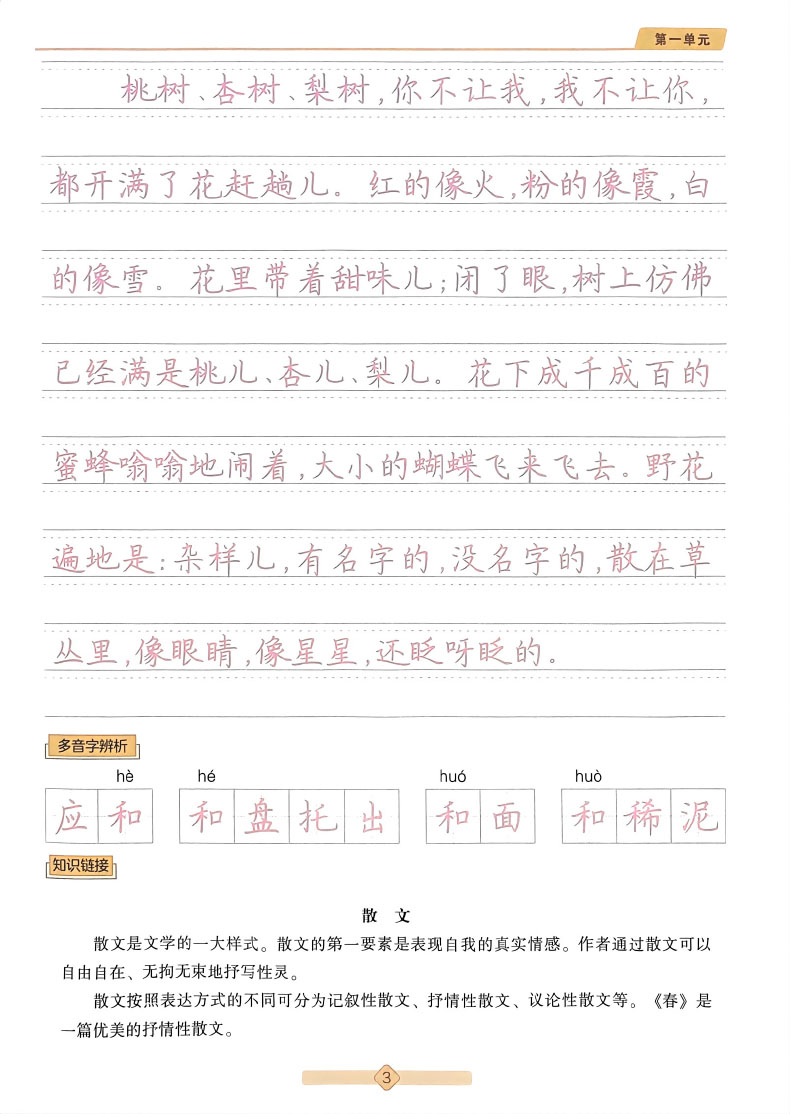 第一单元
桃树、杏树、梨树，你不让我，我不让你，
都开满了花赶趟儿。红的像火，粉的像霞，白
的像雪。花里带着甜味儿；闭了眼，树上仿佛
已经满是桃儿、杏儿、梨儿。花下成千成百的
蜜蜂嗡嗡地闹着，大小的蝴蝶飞来飞去。野花
遍地是：杂样儿，有名字的，没名字的，散在草
丛里，像眼睛，像星星，还眨呀眨的。
多音字辨析
hè hé huó huò
应和 和盘托出 和面 和稀泥
知识链接
散 文
散文是文学的一大样式。散文的第一要素是表现自我的真实情感。作者通过散文可以
自由自在、无拘无束地抒写性灵。
散文按照表达方式的不同可分为记叙性散文、抒情性散文、议论性散文等。《春》是
一篇优美的抒情性散文。
3